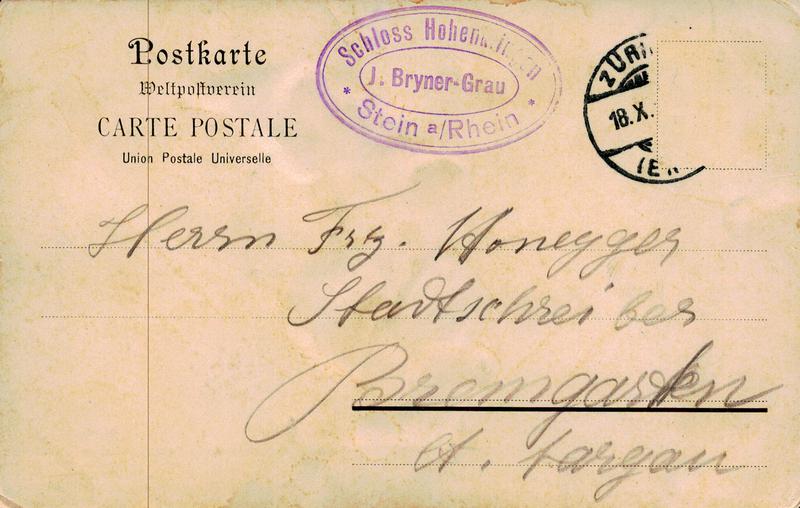 Postkarte
Weltpostverein
CARTE POSTALE
Union Postale Universelle
Schloss Hohenklingen
J. Bryner-Grau
* Stein a/Rhein *
ZÜRI
18.X.
Herrn Frz. Honegger
Stadtschreiber
Bremgarten
Ct. Aargau